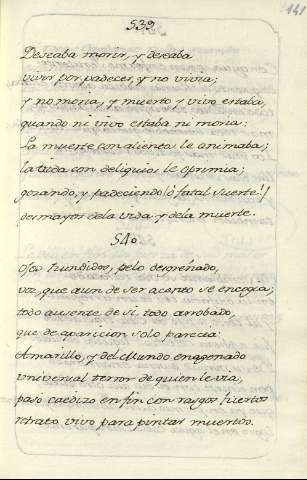 141
539
Deseaba morir, y deseaba
vivir por padecer, y no vivia;
y no moria, y muerto y vivo estaba,
quando ni vivo estaba ni moria:
La muerte con alientos le animaba;
la vida con deliquios le oprimia;
gozando, y padeciendo (ò fatal suerte!)
desmayos dela vida y dela muerte.
540
Ojos hundidos, pelo desgreñado,
voz, que aun de ser acento se encogia;
todo ausente de si, todo arrobado,
que de aparicion solo parecia:
Amarillo, y del Mundo enagenado
universal terror de quien le via,
paso caedizo en fin con rasgos
retrato vivo para pintar muertos.